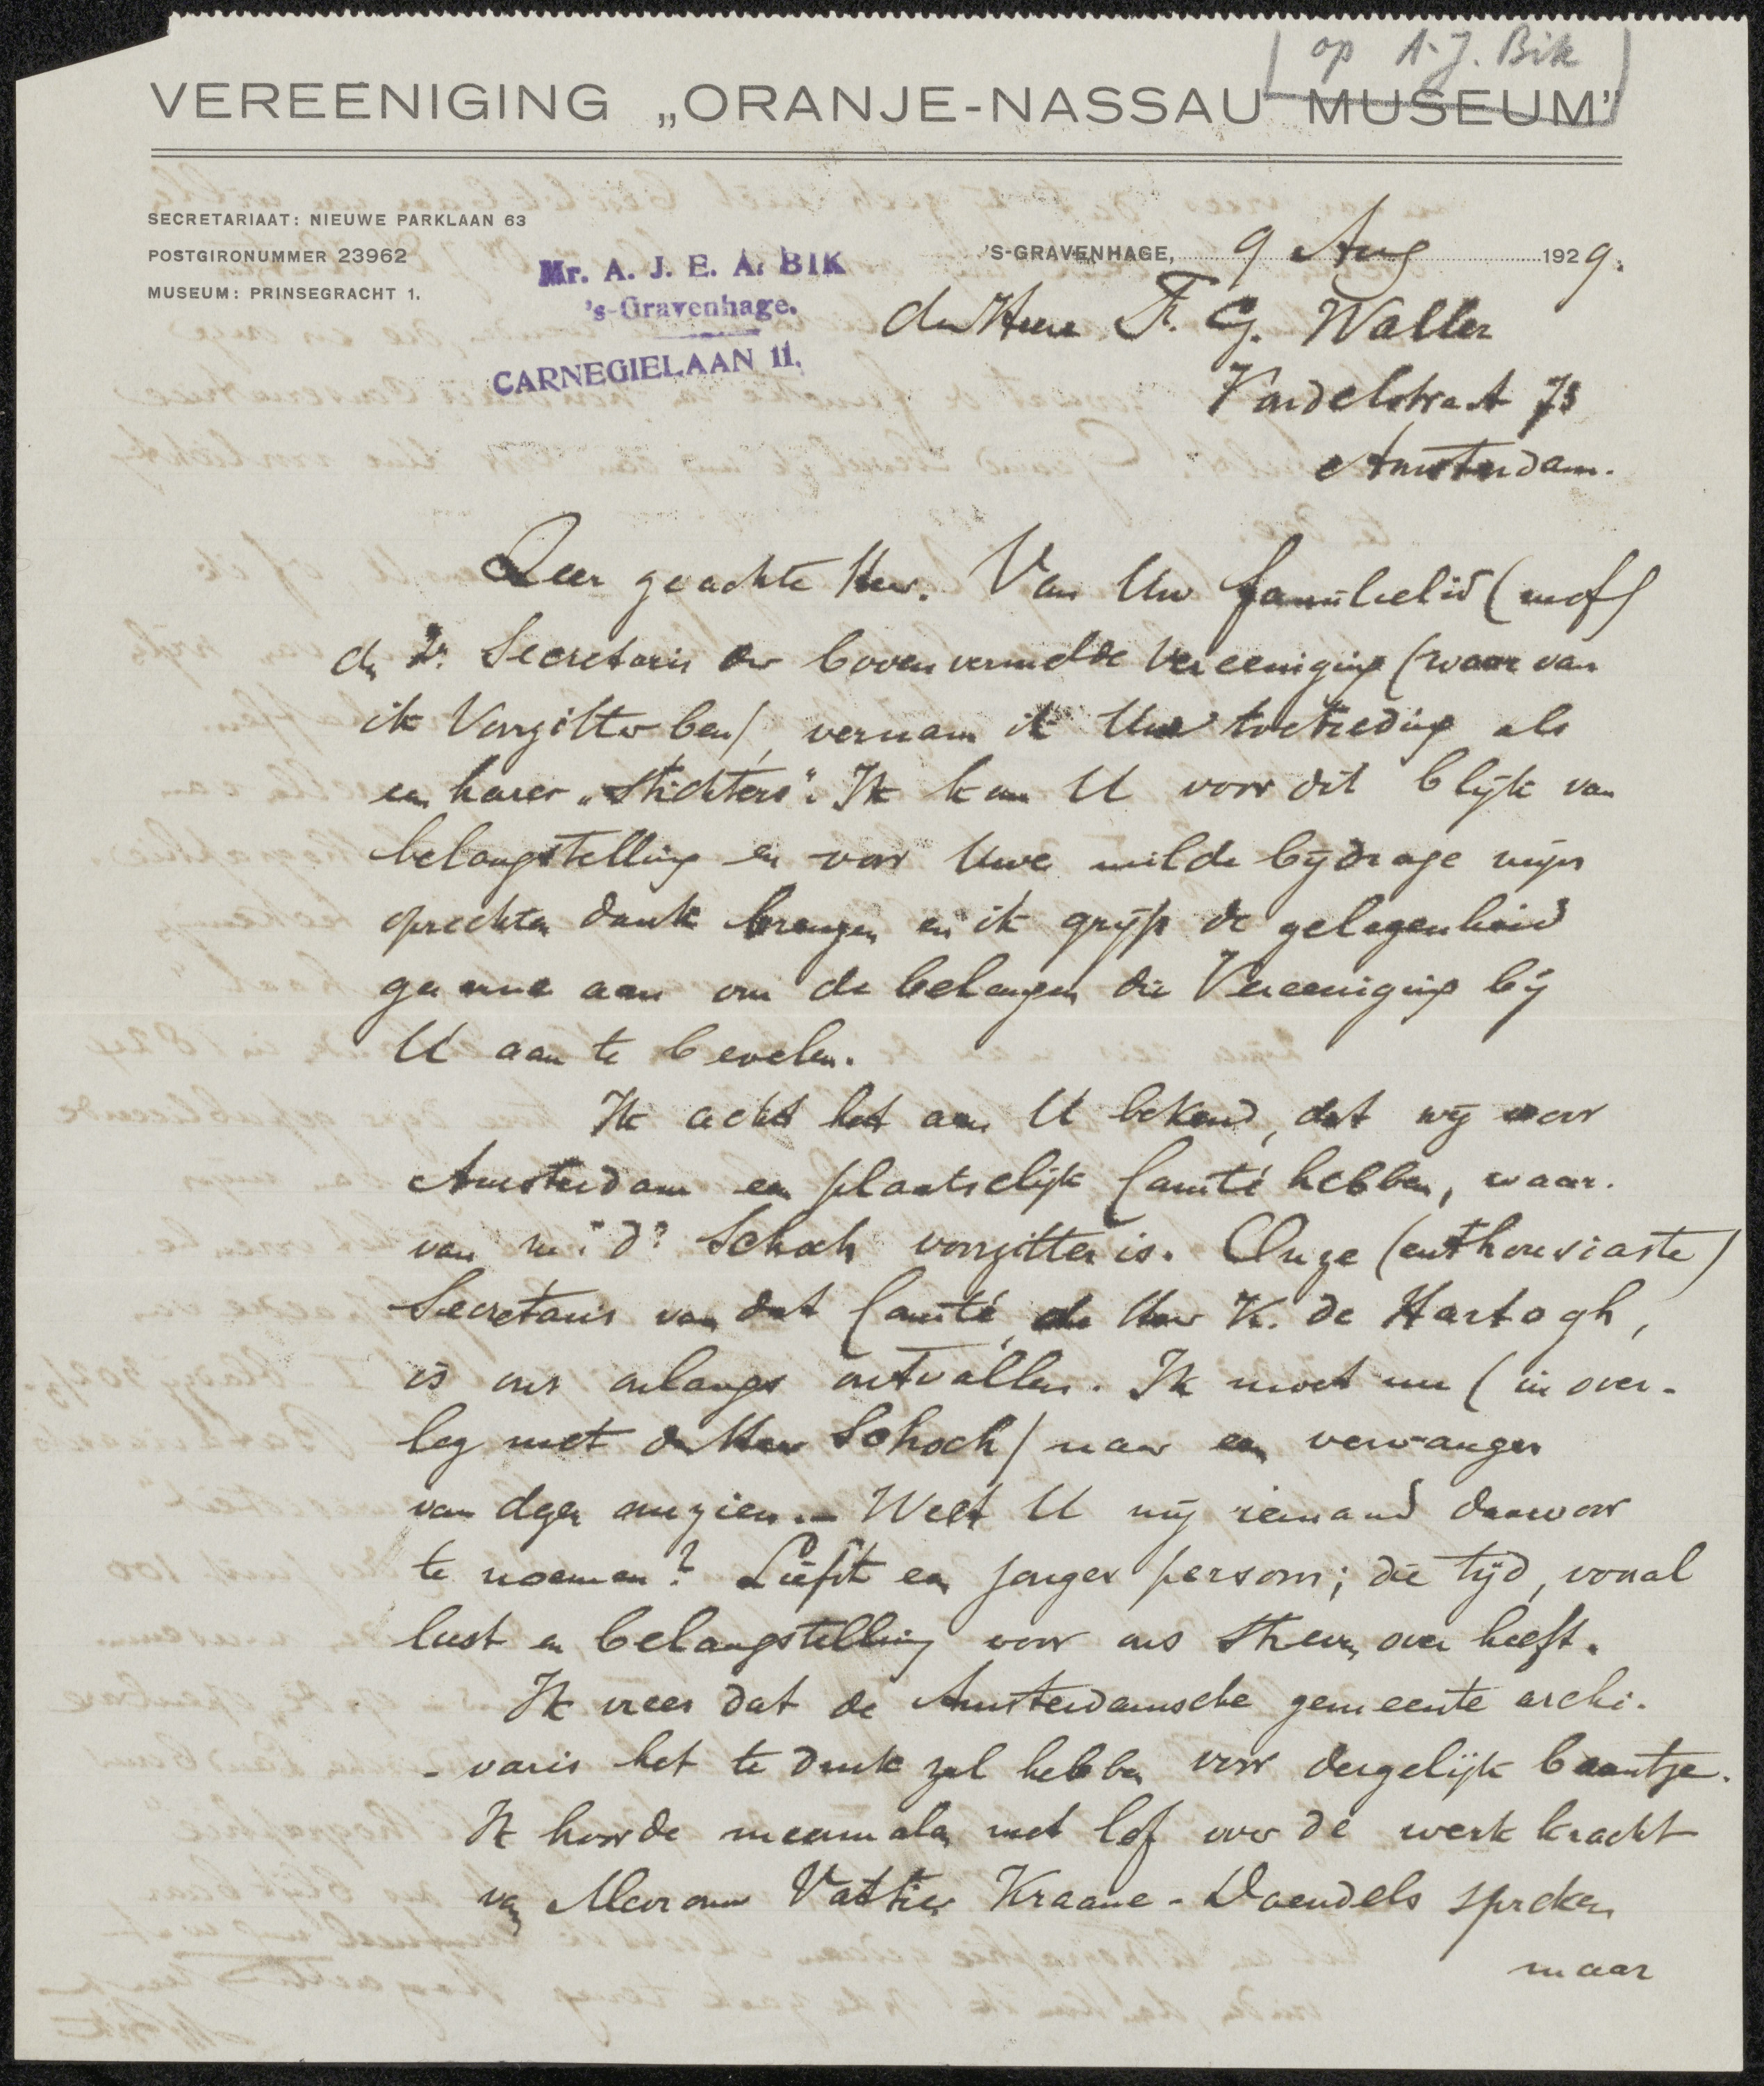 [op A.J. Bik]
VEREENIGING „ORANJE-NASSAU MUSEUM"
SECRETARIAAT: NIEUWE PARKLAAN 63
POSTGIRONUMMER 23962
MUSEUM: PRINSEGRACHT 1.
Mr. A. J. E. A. BIK
's-Gravenhage.
CARNEGIELAAN 11.
'S-GRAVENHAGE, 9 Aug 1929.
den Heere F. G. Waller
Vondelstraat 73
Amsterdam.
Zeer geachte Heer. Van Uw familielid (mej)
de 2e Secretaris der bovenvermelde Vereeniging (waarvan
ik Voorzitter ben), vernam ik Uwe toetreding als
een harer „Stichters". Ik kom U voor dit blijk van
belangstelling en voor Uwe milde bijdrage mijn
oprechten dank brengen en ik grijp de gelegenheid
gaarne aan om de belangen die Vereeniging bij
U aan te bevelen.
Ik acht het aan U bekend, dat wij voor
Amsterdam een plaatselijk Comité hebben, waar-
van Schoch voorzitter is. Onze (enthousiaste)
Secretaris van dat Comité, de Heer K. de Hartogh,
is ons onlangs ontvallen. Ik moet nu (in over-
leg met den Heer Schoch) naar een vervanger
van dezen omzien. – Weet U mij iemand daarvoor
te noemen? Liefst een jonger persoon; die tijd, vooral
lust en belangstelling voor ons streven over heeft.
Ik vrees dat de Amsterdamsche gemeente archi-
-varis het te druk zal hebben voor dergelijk baantje.
Ik hoorde meermalen met lof over de werkkracht
van Mevrouw Vattier Kraane-Daendels spreken
maar